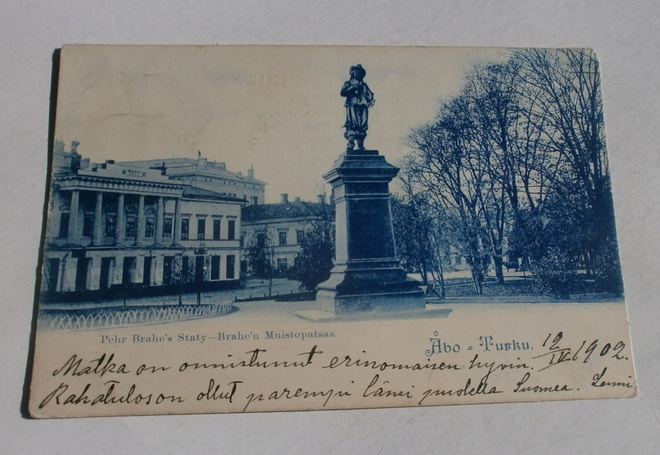 Pehr Brahe's Staty—Brahe'n Muistopatsas.
Åbo - Turku. 12/IV 1902.
Matka on onnistunut erinomaisen hyvin.
Rahatuloson ollut parempi länsi puolella Suomea. Lenni